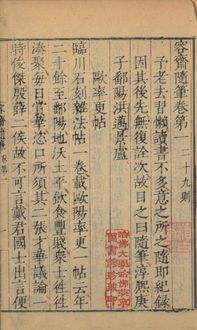 容齋隨筆卷第一 二十九則
予老去習懶讀書不多意之所之隨即紀錄
因其後先無復詮次故目之曰隨筆淳熙庚
子鄱陽洪邁景盧
歐率更帖
臨川石刻雜法帖一卷載歐陽率更一帖云年
二十餘至鄱陽地沃土平飲食豐賤衆士往往
湊聚每日賞華恣口所須其二張才華議論一
時俊傑殷薛二侯故不可言戴君國士出言便
容齋隨筆 卷第一
哈佛大學哈佛燕京
圖書館珍藏印